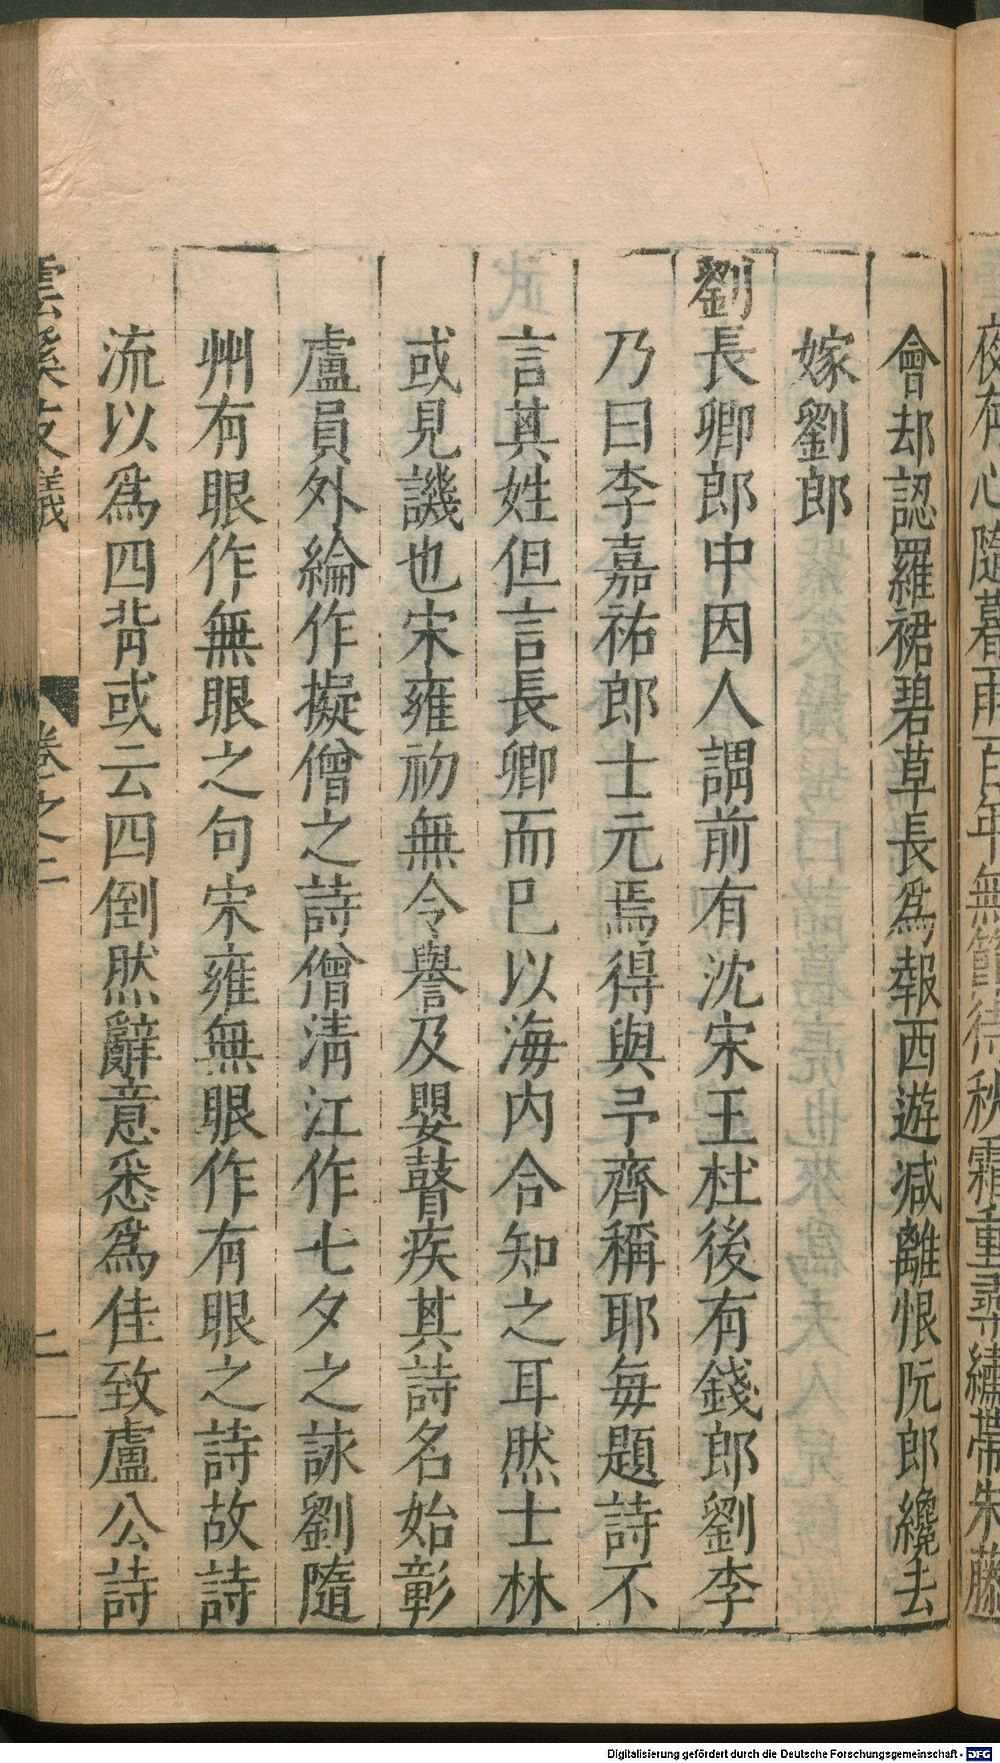 夜有心隨暮雨百年無節待秋霜重尋繡帶朱藤
會却認羅裙碧草長爲報西遊减離恨阮郎纔去
嫁劉郎
劉長卿郎中因人謂前有沈宋王杜後有錢郎劉李
乃曰李嘉祐郎士元焉得與予齊稱耶每題詩不
言其姓但言長卿而已以海内合知之耳然士林
或見譏也宋雍初無令譽及嬰瞽疾其詩名始彰
盧員外綸作擬僧之詩僧清江作七夕之詠劉隨
州有眼作無眼之句宋雍無眼作有眼之詩故詩
流以爲四背或云四倒然辭意悉爲佳致盧公詩
雲溪友議 卷之上 二
Digitalisierung gefördert durch die Deutsche Forschungsgemeinschaft - DFG